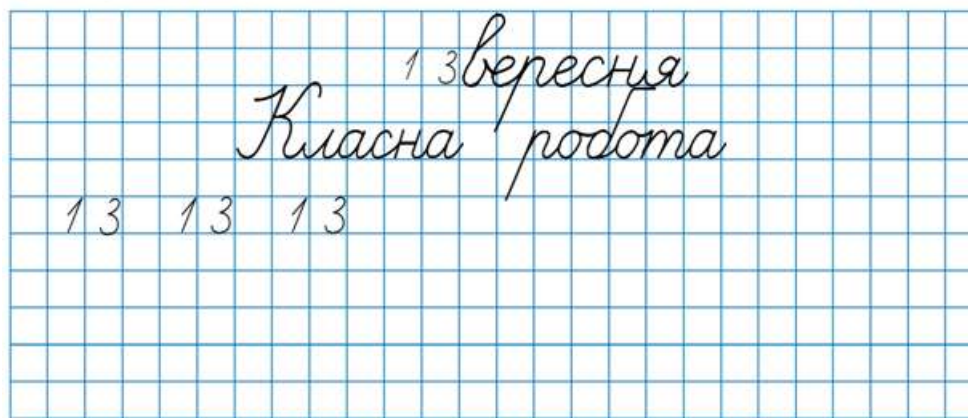 13 вересня
Класна робота
13 13 13